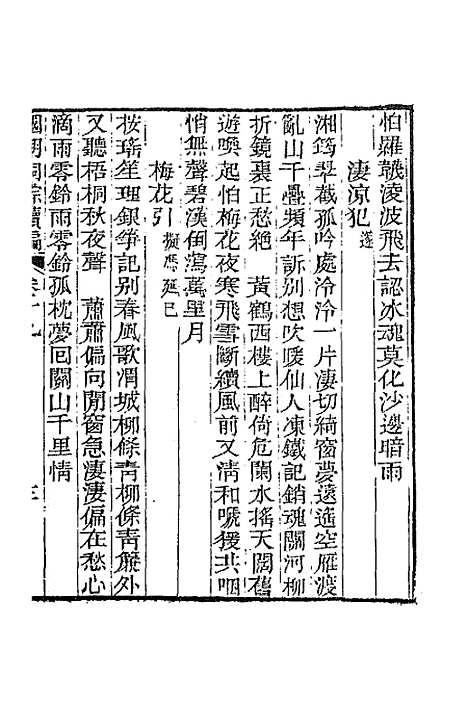 怕羅韈淩波飛去認冰魂莫化沙邊暗雨
淒涼犯 邃
湘筠翠截孤吟處泠泠一片淒切綺窗夢遠遙空雁渡
亂山千疊頻年訴別想吹暖仙人凍鐵記銷魂關河柳
折鏡裏正愁絕 黃鶴西樓上醉倚危闌水搖天闊舊
遊喚起怕梅花夜寒飛雪斷續風前又淸和唬猨共咽
悄無聲碧漢倒瀉萬里月
梅花引 擬馮延巳
按瑤笙理銀箏記別春風歌渭城柳條靑柳條靑簾外
又聽梧桐秋夜聲 蕭蕭偏向閒窗急淒淒偏在愁心
滴雨零鈴雨零鈴孤枕夢回關山千里情
國朝詞綜續編 卷十九 三